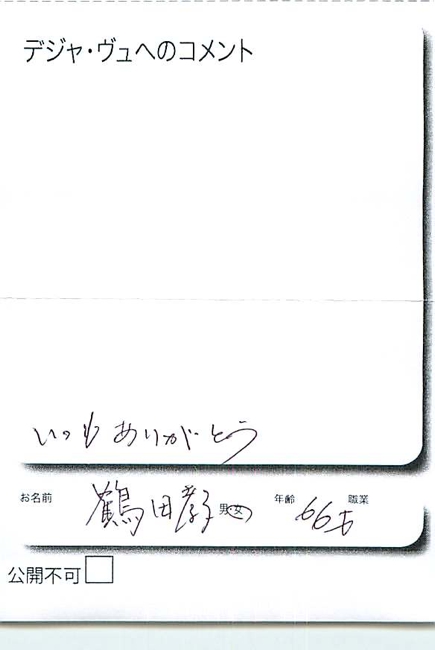 デジャ・ヴュへのコメント
いつもありがとう
お名前 鶴田孝子 男・女 年齢 66才 職業
公開不可